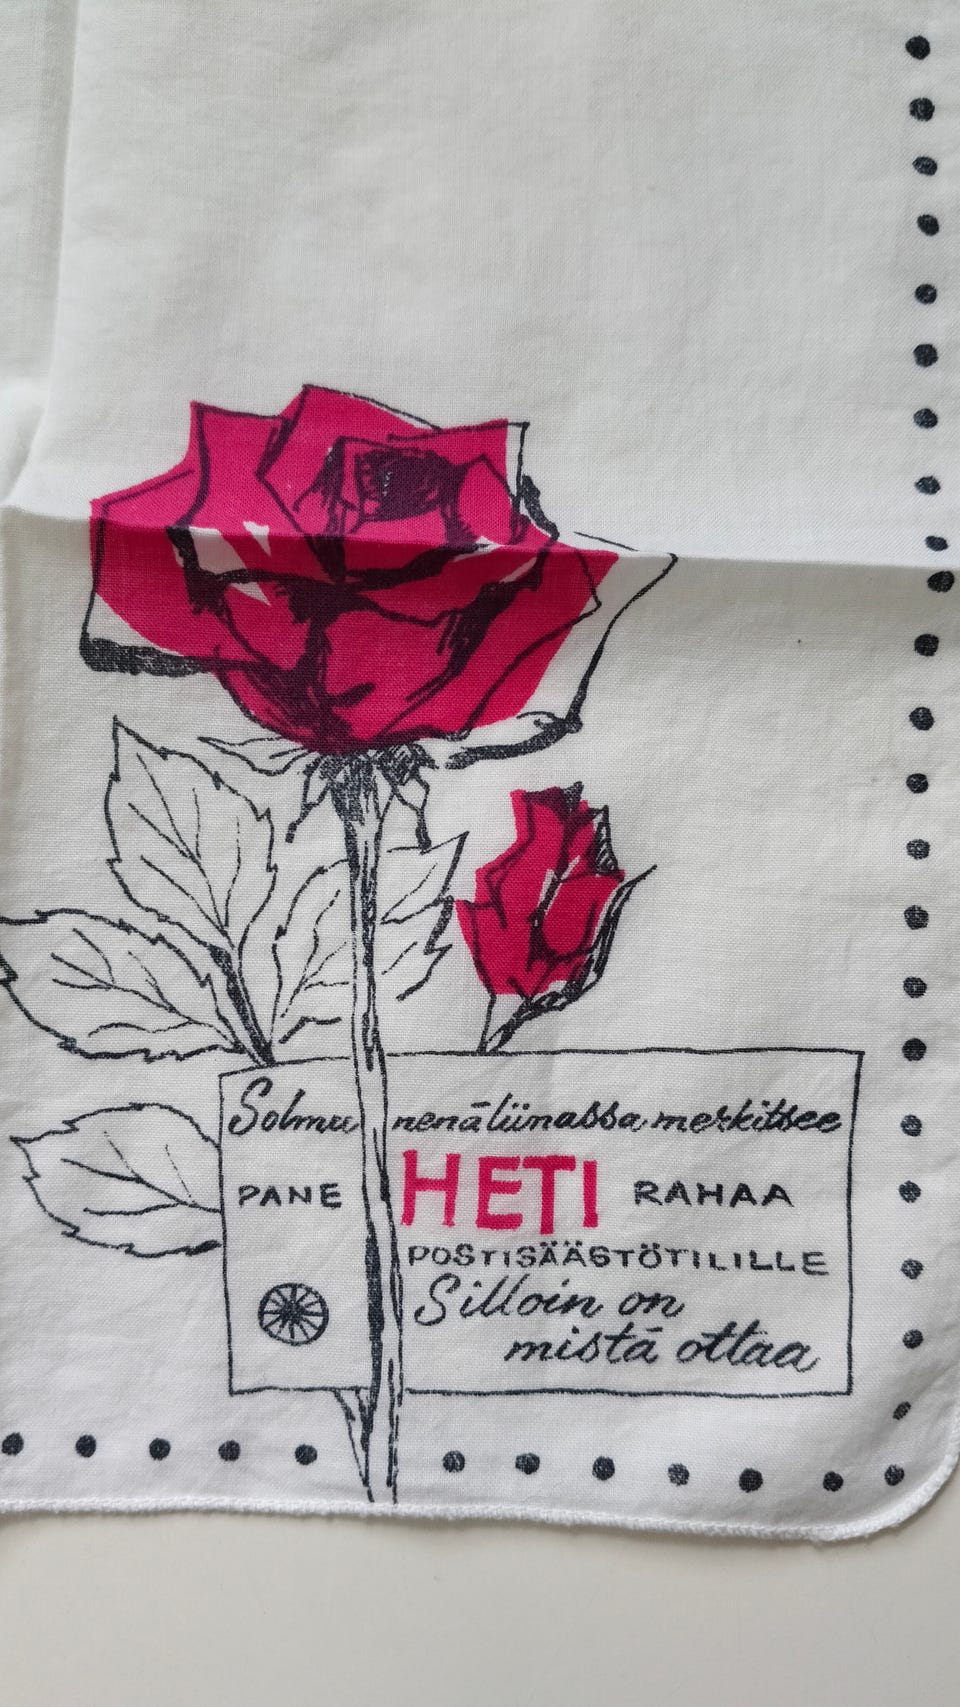 Solmu nenäliinassa merkitsee
PANE HETI RAHAA
POSTISÄÄSTÖTILILLE
Silloin on
mistä ottaa